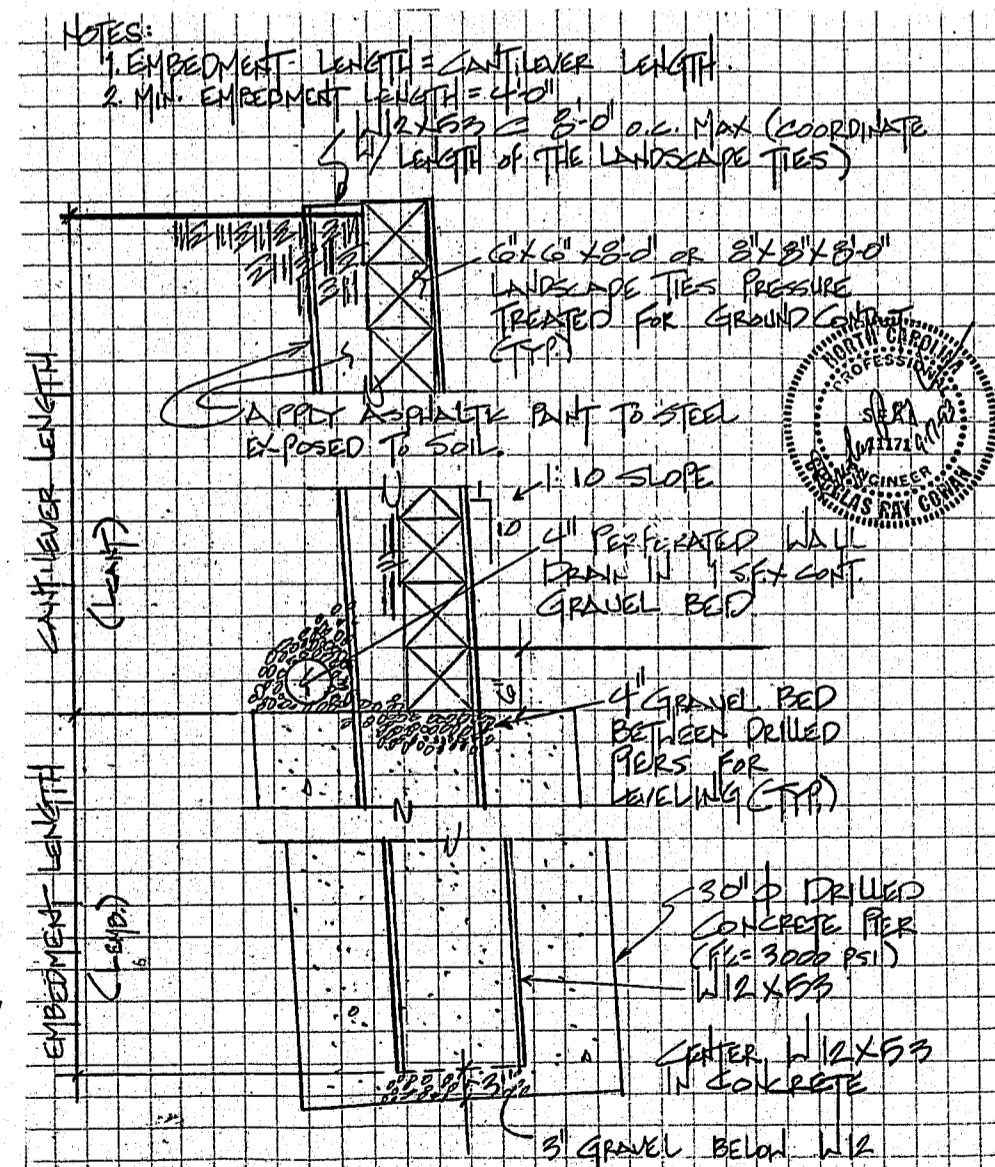 NOTES:
1. EMBEDMENT LENGTH = CANTILEVER LENGTH.
2. MIN. EMBEDMENT LENGTH = 4'-0"
W12X53 @ 8'-0" O.C. MAX (COORDINATE
LENGTH OF THE LANDSCAPE TIES)
6"X6"X8'-0" OR 8"X8"X8'-0"
LANDSCAPE TIES PRESSURE
TREATED FOR GROUND CONTACT
(TYP.)
NORTH CAROLINA
PROFESSIONAL
SEAL
ENGINEER
DOUGLAS RAY COWAN
APPLY ASPHALTIC PAINT TO STEEL
EXPOSED TO SOIL.
CANTILEVER LENGTH
(LCANT)
1:10 SLOPE
1
10
4" PERFORATED WALL
DRAIN IN 1 S.F. X CONT.
GRAVEL BED
6"
4" GRAVEL BED
BETWEEN DRILLED
PIERS FOR
LEVELING (TYP.)
EMBEDMENT LENGTH
(LEMB.)
30"Ø DRILLED
CONCRETE PIER
(F'c = 3000 PSI)
W12X53
CENTER W12X53
IN CONCRETE
3"
3" GRAVEL BELOW W12